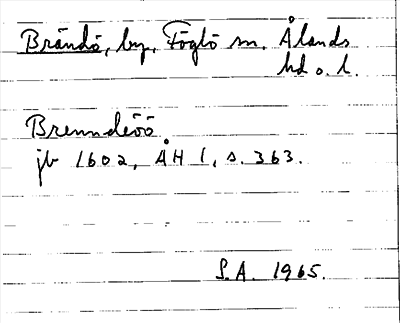 Brändö, by, Föglö sn. Ålands
hd o. l.
Brenndöö
jb 1602, ÅH 1, s. 363.
S.A. 1965.